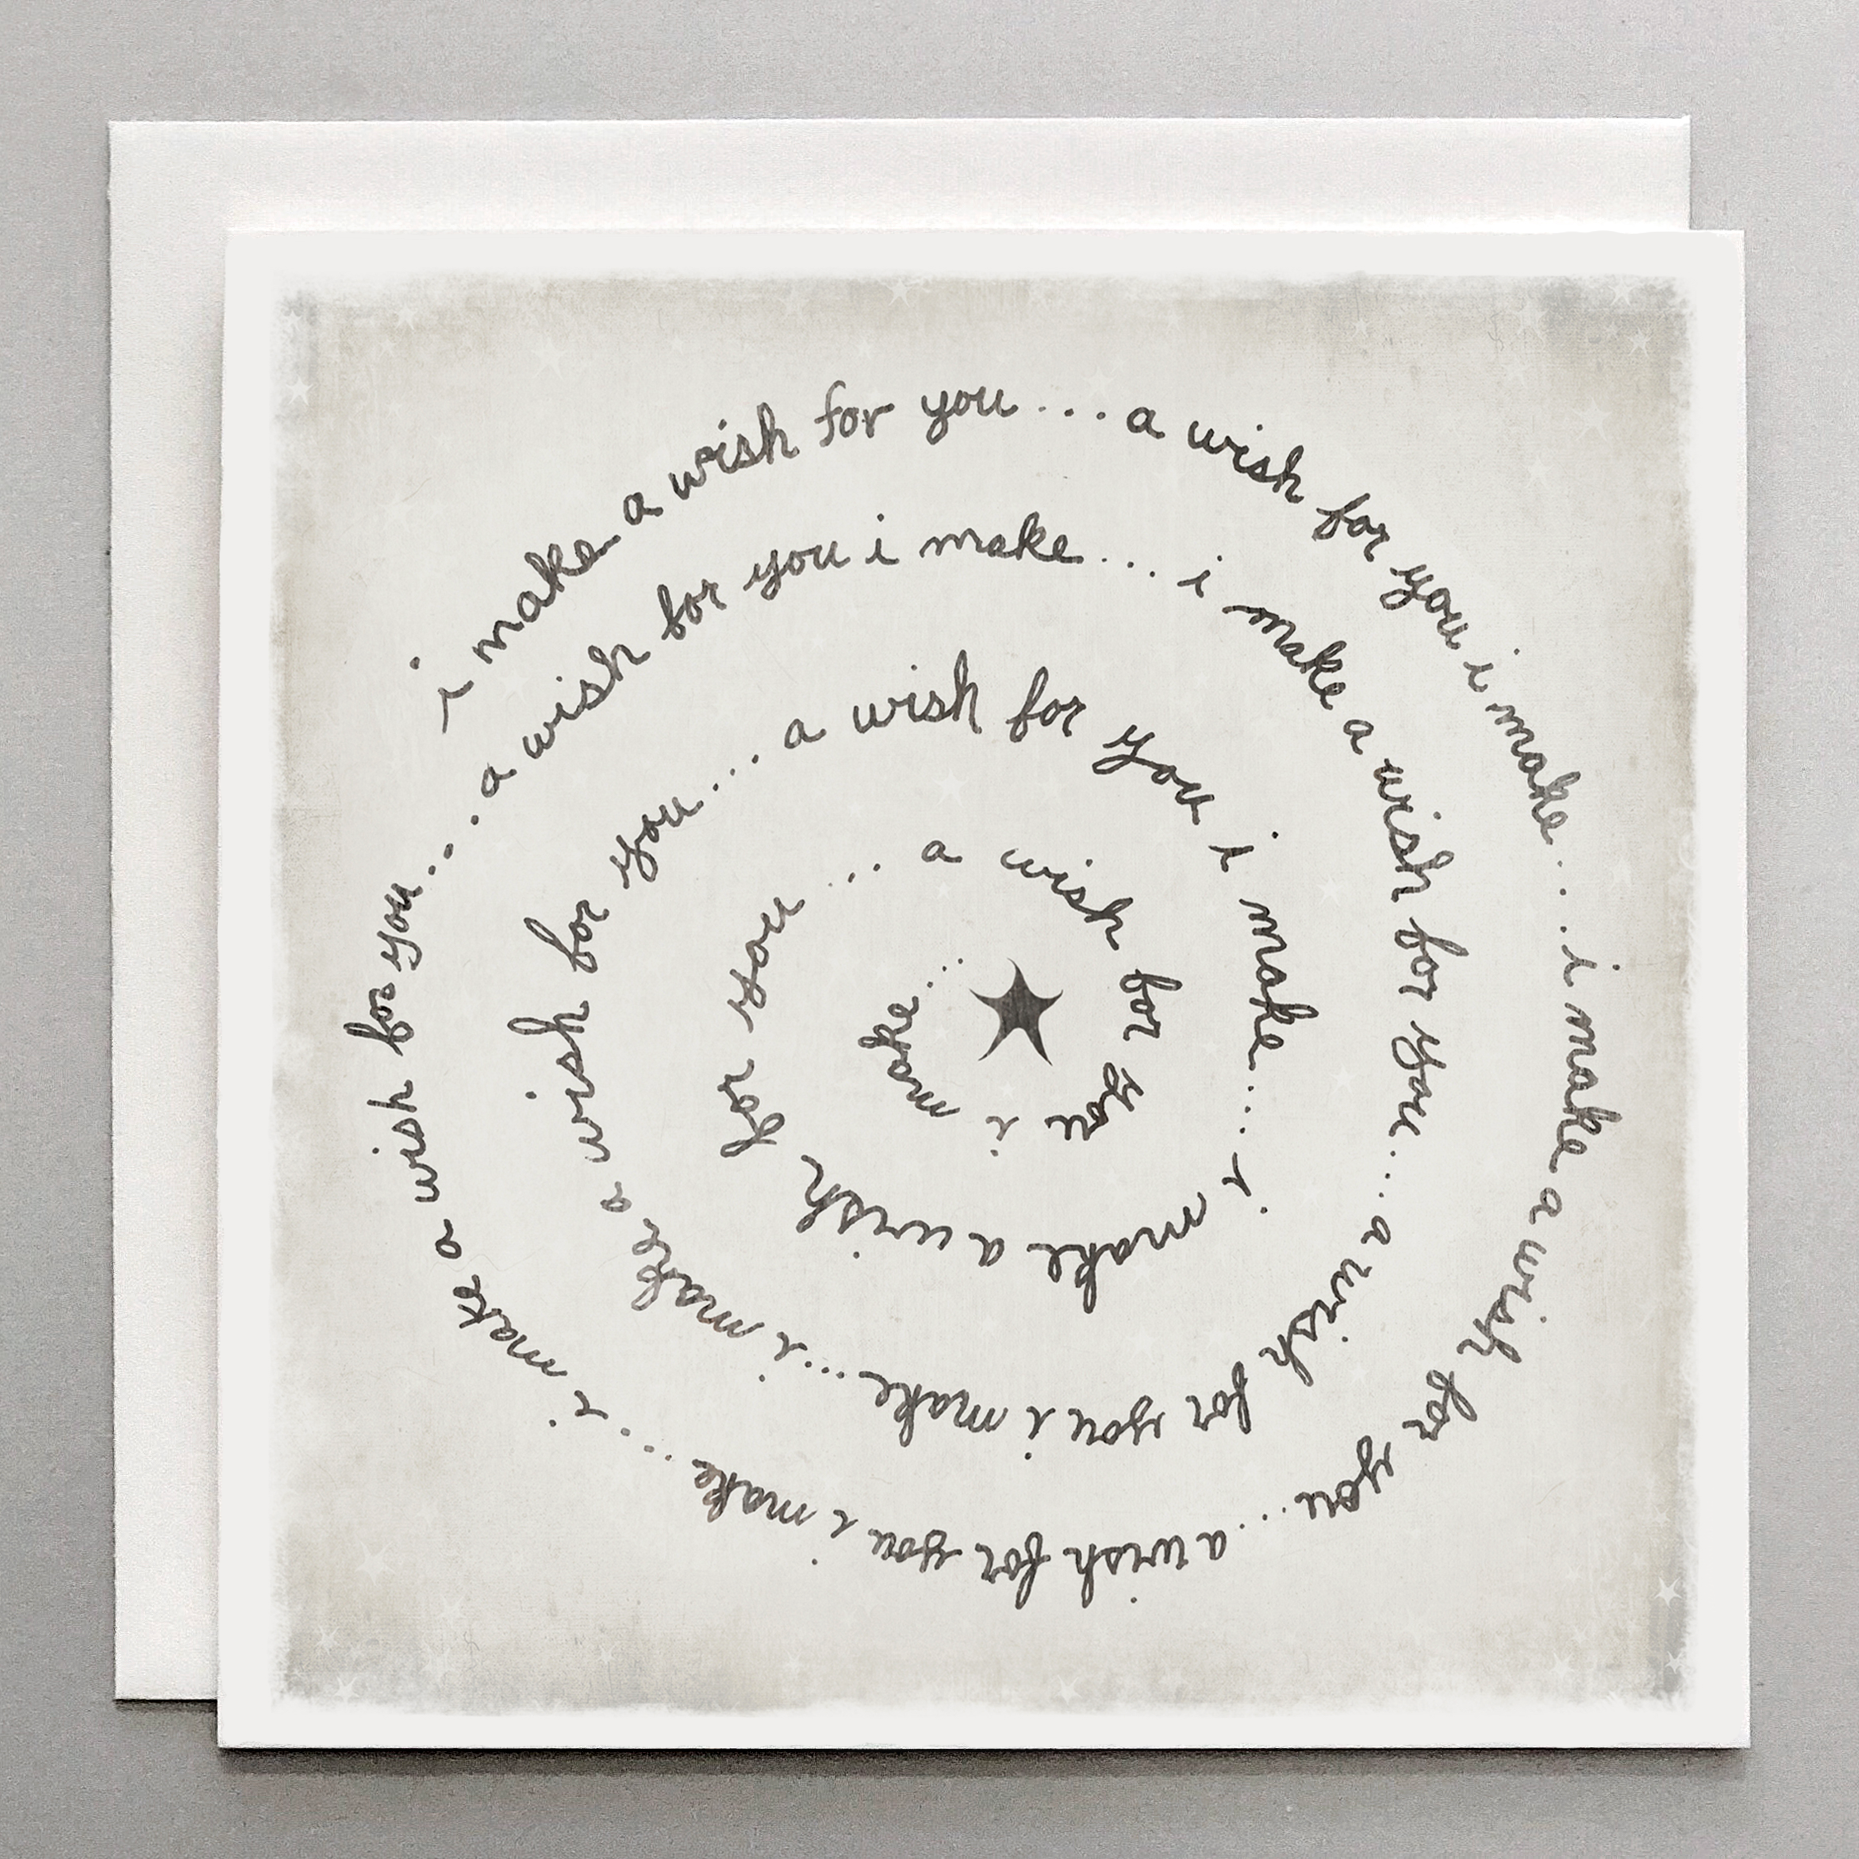 i make a wish for you... a wish for you i make... i make a wish for you... a wish for you i make... i make a wish for you... a wish for you i make... i make a wish for you... a wish for you i make... i make a wish for you... a wish for you i make... i make a wish for you... a wish for you i make...